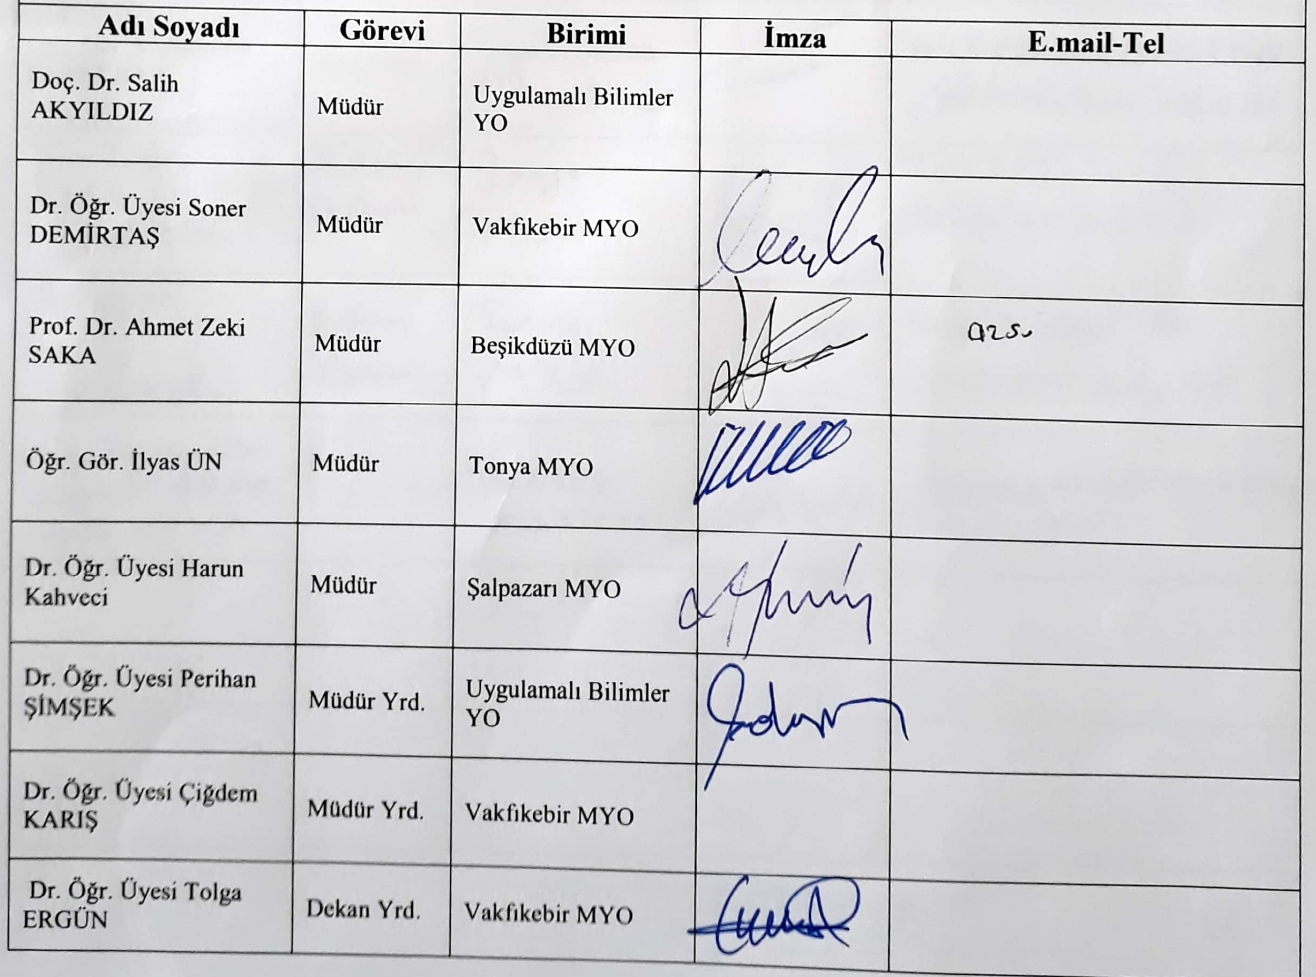 Adı Soyadı Görevi Birimi İmza E.mail-Tel
Doç. Dr. Salih
AKYILDIZ
Müdür
Uygulamalı Bilimler
YO
Dr. Öğr. Üyesi Soner
DEMİRTAŞ
Müdür
Vakfıkebir MYO
Prof. Dr. Ahmet Zeki
SAKA
Müdür
Beşikdüzü MYO
Öğr. Gör. İlyas ÜN
Müdür
Tonya MYO
Dr. Öğr. Üyesi Harun
Kahveci
Müdür
Şalpazarı MYO
Dr. Öğr. Üyesi Perihan
ŞİMŞEK
Müdür Yrd.
Uygulamalı Bilimler
YO
Dr. Öğr. Üyesi Çiğdem
KARIŞ
Müdür Yrd.
Vakfıkebir MYO
Dr. Öğr. Üyesi Tolga
ERGÜN
Dekan Yrd.
Vakfıkebir MYO